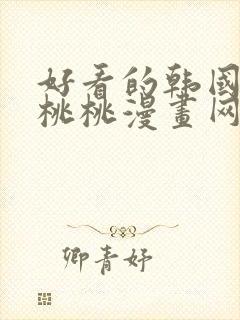 好看的韩国
桃桃漫畫网
卿青妤